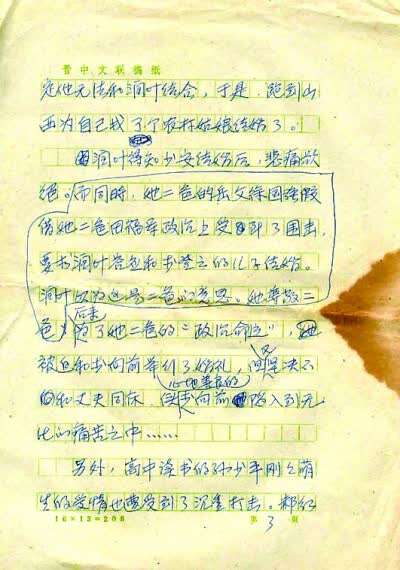 晋中文联稿纸
定他无法和润叶结合，于是，跑到山
西为自己找了个农村姑娘结婚了。
润叶得知少安结婚后，悲痛欲
绝。而同时，她二爸的岳父徐国强假
借她二爸田福军政治上受到了围击，
要求润叶答应和李登云的儿子结婚。
润叶以为这是二爸的意思。她尊敬二
后来
爸，为了她二爸的“政治命运”，
被迫和李向前举行了婚礼，但又坚决不
心地善良的
和丈夫同床，使李向前陷入到无
比的痛苦之中……
另外，高中读书的孙少平刚刚萌
生的爱情也遭受到了沉重打击。郝红
16×13=208 第 3 页